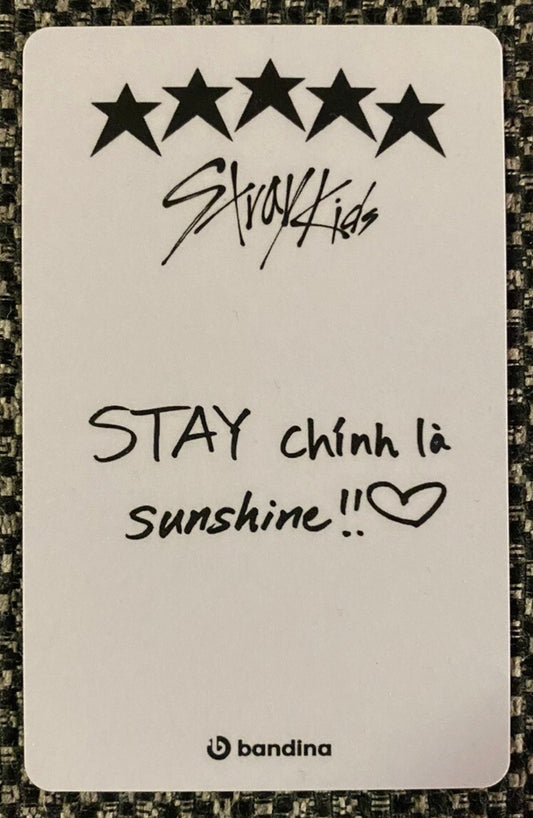 Stray Kids
STAY chính là
sunshine!!♡
bandina